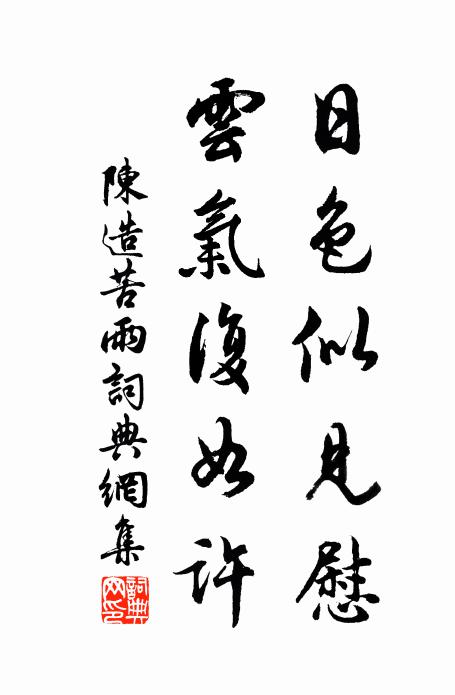 日色似見慰
雲氣復如許
陳造苦雨詞典網集
詞典網印